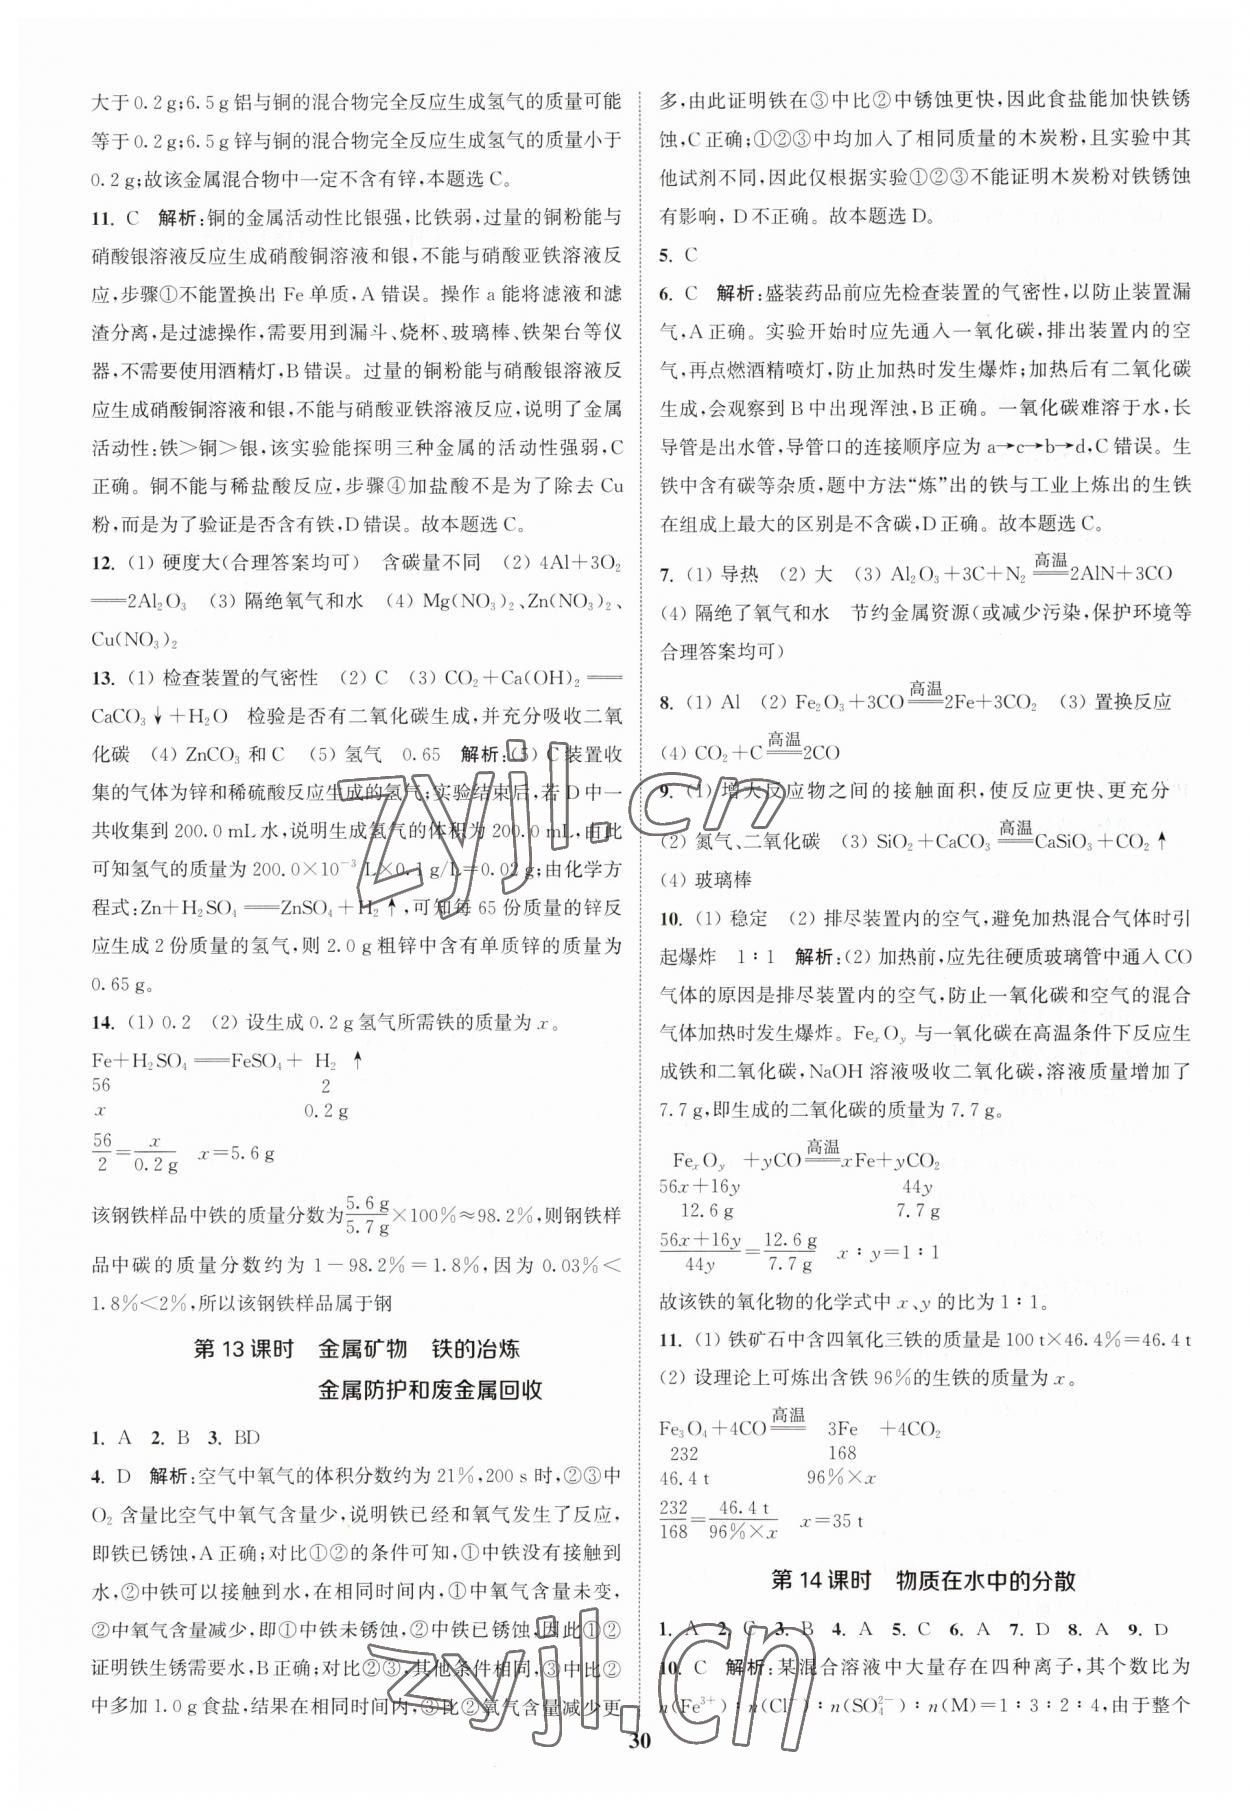 大于0.2 g;6.5 g铝与铜的混合物完全反应生成氢气的质量可能
等于0.2 g;6.5 g锌与铜的混合物完全反应生成氢气的质量小于
0.2 g;故该金属混合物中一定不含有锌,本题选C。
11. C 解析:铜的金属活动性比银强,比铁弱,过量的铜粉能与
硝酸银溶液反应生成硝酸铜溶液和银,不能与硝酸亚铁溶液反
应,步骤①不能置换出Fe单质,A错误。操作a能将滤液和滤
渣分离,是过滤操作,需要用到漏斗、烧杯、玻璃棒、铁架台等仪
器,不需要使用酒精灯,B错误。过量的铜粉能与硝酸银溶液反
应生成硝酸铜溶液和银,不能与硝酸亚铁溶液反应,说明了金属
活动性:铁＞铜＞银,该实验能探明三种金属的活动性强弱,C
正确。铜不能与稀盐酸反应,步骤④加盐酸不是为了除去Cu
粉,而是为了验证是否含有铁,D错误。故本题选C。
12. (1) 硬度大(合理答案均可) 含碳量不同 (2) 4Al+3O₂
══2Al₂O₃ (3) 隔绝氧气和水 (4) Mg(NO₃)₂、Zn(NO₃)₂、
Cu(NO₃)₂
13. (1) 检查装置的气密性 (2) C (3) CO₂+Ca(OH)₂══
CaCO₃↓+H₂O 检验是否有二氧化碳生成,并充分吸收二氧
化碳 (4) ZnCO₃和C (5) 氢气 0.65 解析:(5) C装置收
集的气体为锌和稀硫酸反应生成的氢气;实验结束后,若D中一
共收集到200.0 mL水,说明生成氢气的体积为200.0 mL,由此
可知氢气的质量为200.0×10⁻³ L×0.1 g/L=0.02 g;由化学方
程式:Zn+H₂SO₄══ZnSO₄+H₂↑,可知每65份质量的锌反
应生成2份质量的氢气,则2.0 g粗锌中含有单质锌的质量为
0.65 g。
14. (1) 0.2 (2) 设生成0.2 g氢气所需铁的质量为x。
Fe+H₂SO₄══FeSO₄+ H₂ ↑
56 2
x 0.2 g
56/2=x/0.2 g x=5.6 g
该钢铁样品中铁的质量分数为5.6 g/5.7 g×100%≈98.2%,则钢铁样
品中碳的质量分数约为1-98.2%=1.8%,因为0.03%<
1.8%<2%,所以该钢铁样品属于钢
第13课时 金属矿物 铁的冶炼
金属防护和废金属回收
1. A 2. B 3. BD
4. D 解析:空气中氧气的体积分数约为21%,200 s时,②③中
O₂含量比空气中氧气含量少,说明铁已经和氧气发生了反应,
即铁已锈蚀,A正确;对比①②的条件可知,①中铁没有接触到
水,②中铁可以接触到水,在相同时间内,①中氧气含量未变,
②中氧气含量减少,即①中铁未锈蚀,②中铁锈蚀,因此①②
证明铁生锈需要水,B正确;对比②③,其他条件相同,③中比②
中多加1.0 g食盐,结果在相同时间内,③比②氧气含量减少更
多,由此证明铁在③中比②中锈蚀更快,因此食盐能加快铁锈
蚀,C正确;①②③中均加入了相同质量的木炭粉,且实验中其
他试剂不同,因此仅根据实验①②③不能证明木炭粉对铁锈蚀
有影响,D不正确。故本题选D。
5. C
6. C 解析:盛装药品前应先检查装置的气密性,以防止装置漏
气,A正确。实验开始时应先通入一氧化碳,排出装置内的空
气,再点燃酒精喷灯,防止加热时发生爆炸;加热后有二氧化碳
生成,会观察到B中出现浑浊,B正确。一氧化碳难溶于水,长
导管是出水管,导管口的连接顺序应为a→c→b→d,C错误。生
铁中含有碳等杂质,题中方法“炼”出的铁与工业上炼出的生铁
在组成上最大的区别是不含碳,D正确。故本题选C。
7. (1) 导热 (2) 大 (3) Al₂O₃+3C+N₂ 高温══ 2AlN+3CO
(4) 隔绝了氧气和水 节约金属资源(或减少污染,保护环境等
合理答案均可)
8. (1) Al (2) Fe₂O₃+3CO 高温══ 2Fe+3CO₂ (3) 置换反应
(4) CO₂+C 高温══ 2CO
9. (1) 增大反应物之间的接触面积,使反应更快、更充分
(2) 氮气、二氧化碳 (3) SiO₂+CaCO₃ 高温══ CaSiO₃+CO₂↑
(4) 玻璃棒
10. (1) 稳定 (2) 排尽装置内的空气,避免加热混合气体时引
起爆炸 1∶1 解析:(2) 加热前,应先往硬质玻璃管中通入CO
气体的原因是排尽装置内的空气,防止一氧化碳和空气的混合
气体加热时发生爆炸。FeₓOᵧ与一氧化碳在高温条件下反应生
成铁和二氧化碳,NaOH溶液吸收二氧化碳,溶液质量增加了
7.7 g,即生成的二氧化碳的质量为7.7 g。
FeₓOᵧ +yCO 高温══ xFe+yCO₂
56x+16y 44y
12.6 g 7.7 g
56x+16y/44y=12.6 g/7.7 g x∶y=1∶1
故该铁的氧化物的化学式中x、y的比为1∶1。
11. (1) 铁矿石中含四氧化三铁的质量是100 t×46.4%=46.4 t
(2) 设理论上可炼出含铁96%的生铁的质量为x。
Fe₃O₄+4CO 高温══ 3Fe +4CO₂
232 168
46.4 t 96%×x
232/168=46.4 t/96%×x x=35 t
第14课时 物质在水中的分散
1. A 2. C 3. B 4. A 5. C 6. A 7. D 8. A 9. D
10. C 解析:某混合溶液中大量存在四种离子,其个数比为
n(Fe³⁺)∶n(Cl⁻)∶n(SO₄²⁻)∶n(M)=1∶3∶2∶4,由于整个
30
zyjl.cn
zyjl.cn